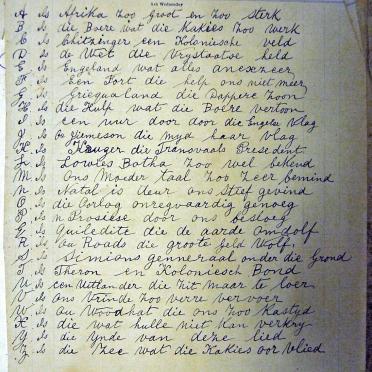 Ash Wednesday
A Is Afrika zoo Groot en zoo sterk
B Is die Boere wat die Kakies zoo werk
C Is Chitzinger een Kolonische veld
D Is de Wet die Vrystaatse held
E Is Engeland wat alles anexzeer
F Is Een Fort die help ons niet meer
G Is Griequaland die dappere zoon
H Is die Hulp wat die Boere verloon
I Is een uur door door die Engelse vlag
J Is Jiemeson die myd haar vlag
K Is Kruger die Transvaals President
L Is Lowies Botha zoo wel bekend
M Is Ons Moeder taal zoo zeer bemind
N Is Natal is deur ons Stief gevind
O Is die Oorlog onregvaardig genoeg
P Is 'n Prosiese door ons besloeg
Is Guiledite die de aarde omdolf
R Is Roads die groote Geld Wolf
S Is Simians genneraal onder die Grond
T Is Theron en Koloniesch Bond
U Is een Uetlander die zit maar te loer
V Is Ons Vrinde zoo verre vervoer
W Is Woodhat die ons zoo kastyd
X Is die wat hulle niet kan verkry
Y Is die Ynde van deze lied
Z Is die Zee wat die Kakies oor vlied